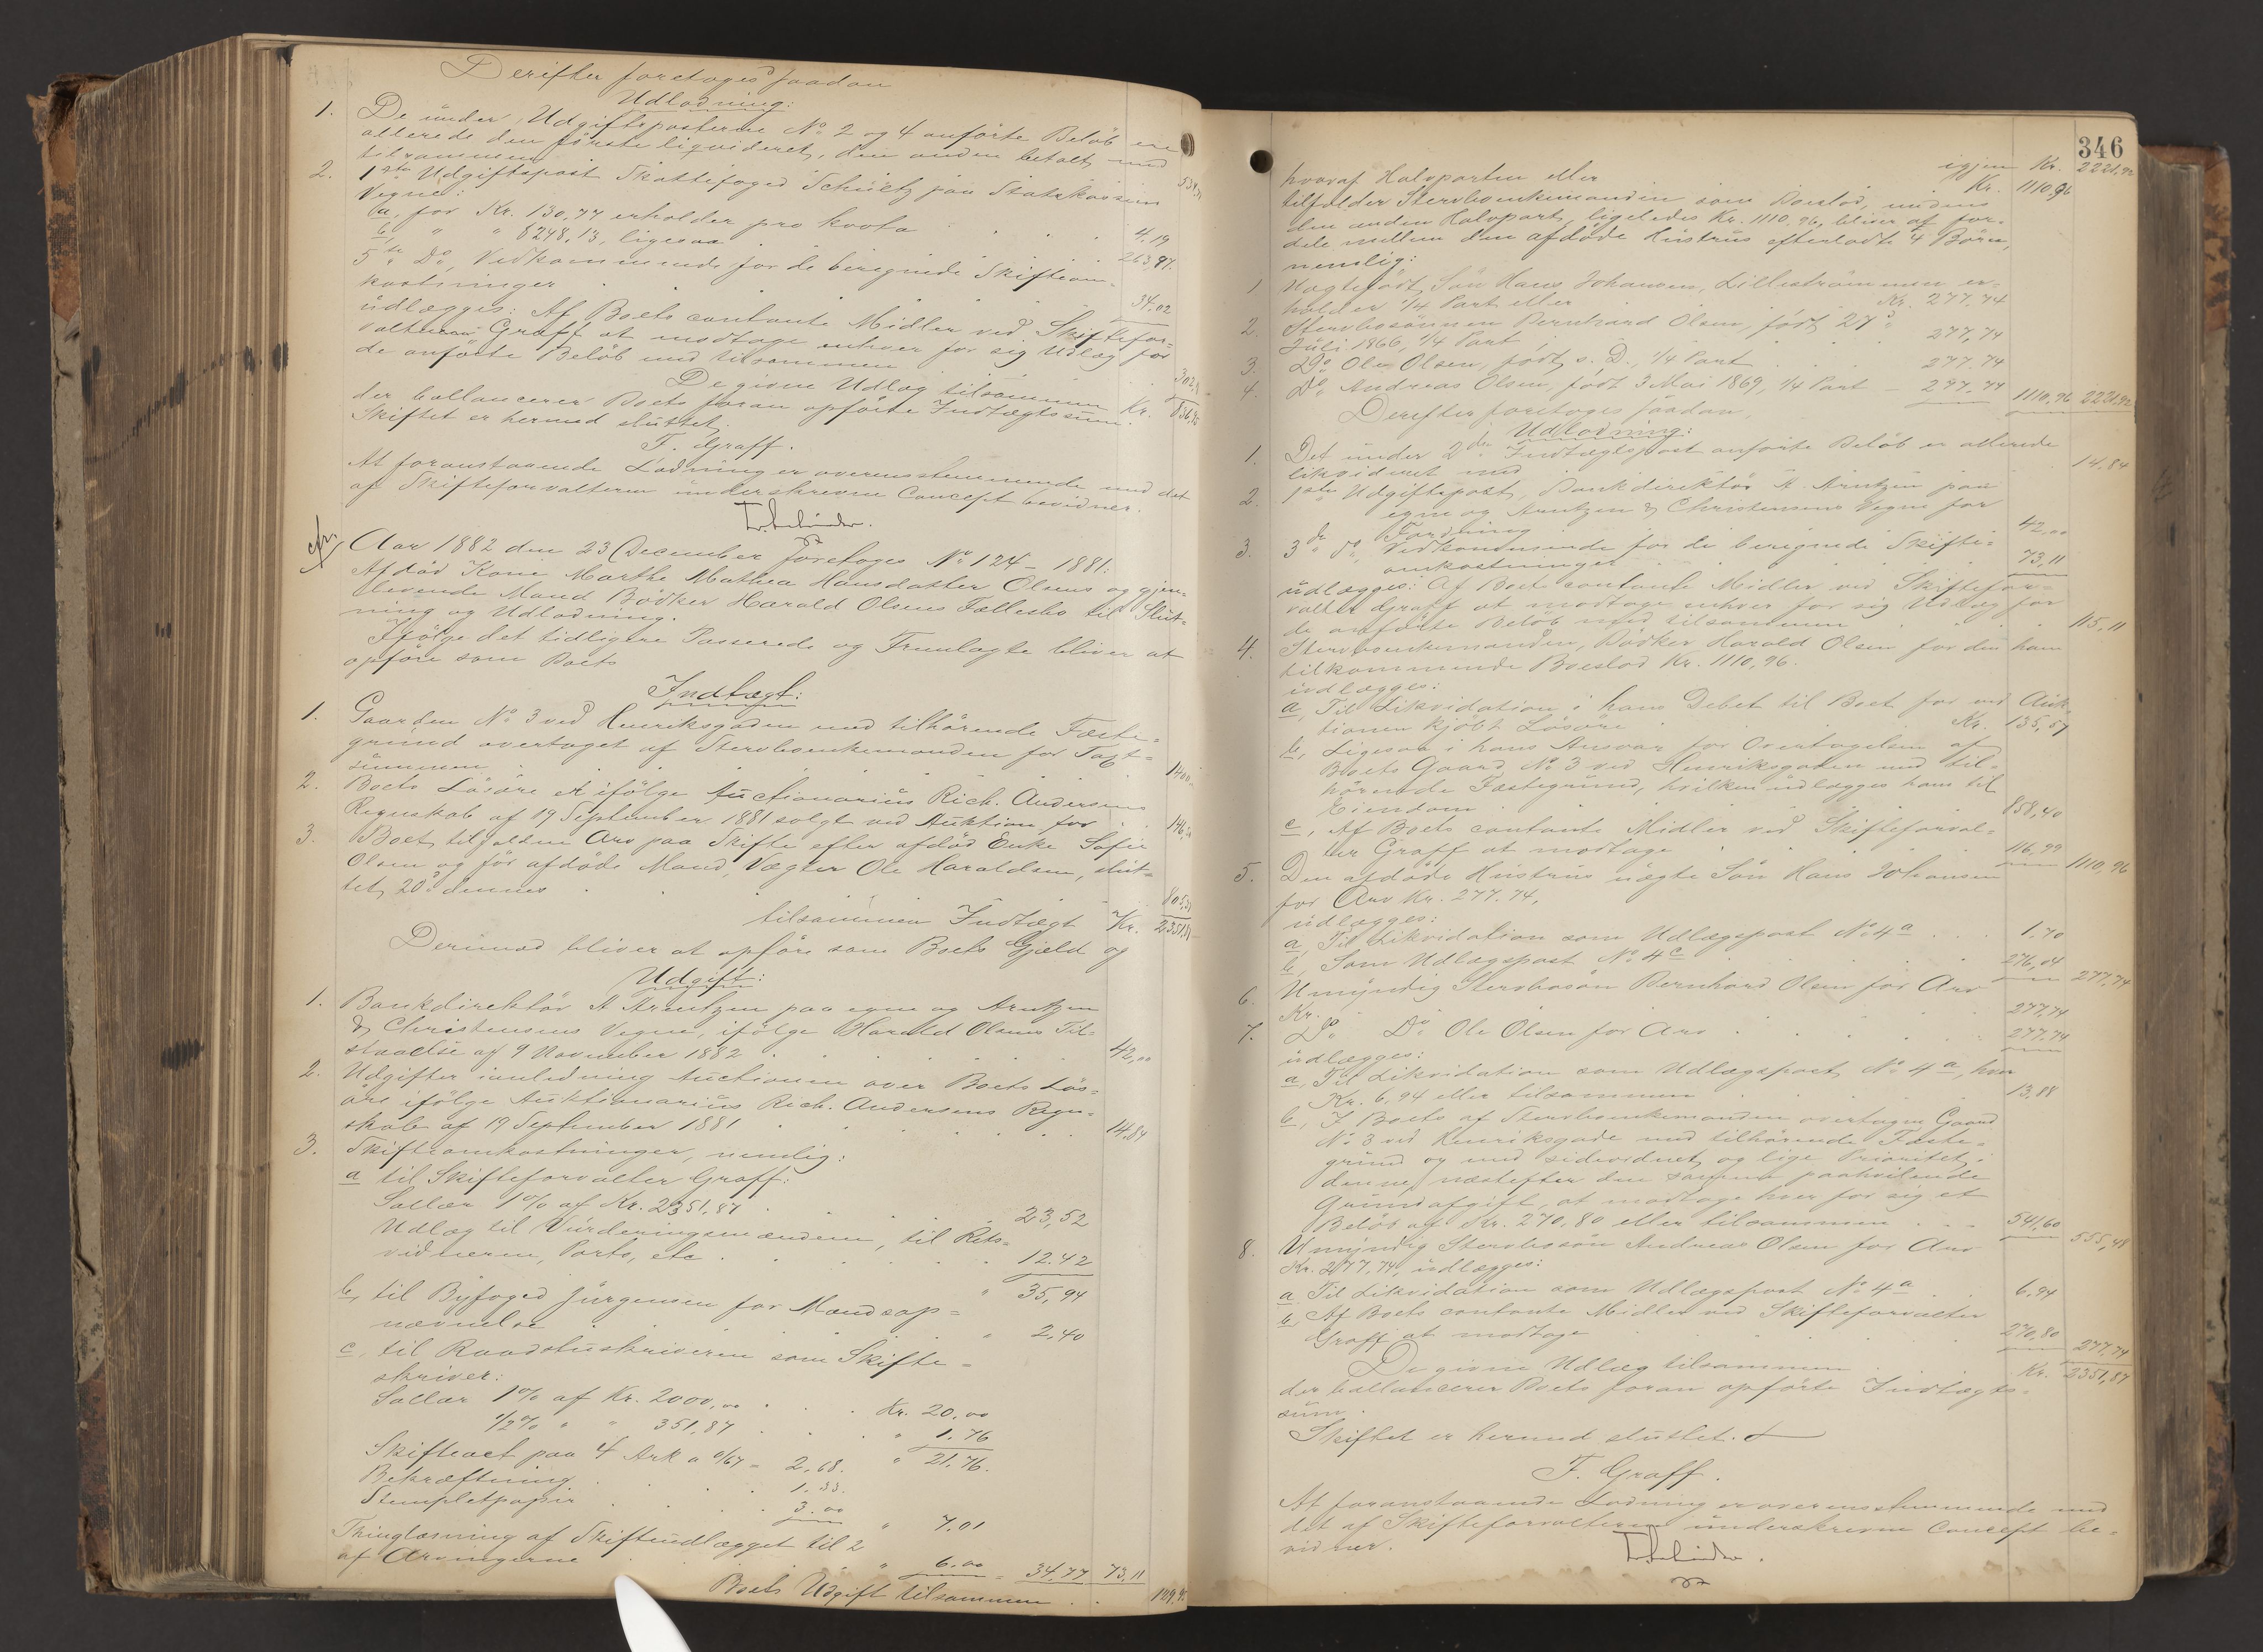 Derefter foretoges saadan
Udlodning:
1. De under Udgiftsposterne No 2 og 4 anførte Beløb ere
allerede den første liqvideret, den anden betalt, med
tilsammen
2. 1ste Udgiftspost Skattefoged Schultz paa Statskassens
Vegne:
a, for Kr. 130,77 erholder pro kvota . . . 4,19
b, " " 8248,13, ligesaa . . . 263,97.
5te Do, Vedkommende for de beregnede Skifteom-
kostninger . . . 34,02
udlægges: Af Boets contante Midler ved Skiftefor-
valteren Graff at modtage enhver for sig Udlæg for
de anførte Beløb med tilsammen
De givne Udlæg tilsammen Kr.
der ballancerer Boets foran opførte Indtægtssum.
Skiftet er hermed sluttet.
F. Graff.
At foranstaaende Lodning er overensstemmende med det
af Skifteforvalteren underskrevne Concept bevidner.
Aar 1882 den 23 December foretoges No 124 - 1881:
Afdød Kone Marthe Mathea Hansdatter Olsens og gjen-
levende Mand Bødker Harald Olsens Fællesbo til Slut-
ning og Udlodning.
Ifølge det tidligere Passerede og Fremlagte bliver at
opføre som Boets
Indtægt:
1. Gaarden No 3 ved Henriksgaden med tilhørende Fæste-
grund overtaget af Stervboenkemanden for Taxt-
summen . . . 1400
2. Boets Løsøre er ifølge Auctionarius Rich. Andersens
Regnskab af 19 September 1881 solgt ved Auktion for
3. Boet tilfalden Arv paa Skifte efter afdød Enke Sofie
Olsen og før afdøde Mand, Vægter Ole Haraldsen, slut-
tet 20de dennes
tilsammen Indtægt Kr. 2351,87
Derimod bliver at opføre som Boets Gjeld og
Udgift:
1. Bankdirektør A Arentzen paa egne og Arntzen
& Christensens Vegne, ifølge Harald Olsens Til-
staaelse af 9 November 1882 . . . 42,00
2. Udgifter i anledning Auctionen over Boets Løs-
øre ifølge Auktionarius Rich. Andersens Regn-
skab af 19 September 1881 . . . 14,84
3. Skifteomkostninger, nemlig:
a til Skifteforvalter Graff:
Sallær 1% af Kr. 2351.87 . . . 23,52
Udlæg til Vurderingsmændene, til Rets-
vidnerne, Porto, etc . . . 12.42
" 35,94
b, til Byfoged Jürgensen for Mændsop-
nævnelse . . . " 2,40
c, til Raadstuskriveren som Skifte-
skriver:
Sallær 1% af Kr. 2000,00 . . . Kr. 20,00
1/2% " " 351,87 . . . " 1,76
" 21,76.
Skifteact paa 4 Ark a 0/67 = 2,68.
Bekræftning . . . 1.33.
Stempletpapir . . . 3.00
" 7,01
Thinglæsning af Skifteudlægget til 2
af Arvingerne . . . " 6.00 = 34,77 73,11
Boets Udgift tilsammen . .
346
igjen Kr. 2221,92
hvoraf Halvparten eller Kr. 1110,96
tilfalder Stervboenkemanden som Boeslod, medens
den anden Halvpart, ligeledes Kr. 1110.96, bliver at for-
dele mellem den afdøde Hustrus efterladte 4 Børn,
nemlig:
1, Uægtefødt Søn Hans Johansen, Lillestrømmen er-
holder 1/4 Part eller Kr. 277,74
2. Stervbosønnen Bernhard Olsen, født 27de
Juli 1866, 1/4 Part . . . 277,74
3. Do, Ole Olsen, født s. D., 1/4 Part . . . 277.74
4. Do, Andreas Olsen, født 3 Mai 1869, 1/4 Part 277,74 1110,96 2221,92
Derefter foretoges saadan
Udlodning:
1. Det under 2den Indtægtspost anførte Beløb er allerede
likvideret med . . . 14,84
2. 1ste Udgiftspost, Bankdirektør A. Arntzen paa
egne og Arntzen & Christensens Vegne for
Fordring . . . 42,00
3. 3de Do, Vedkommende for de beregnede Skifte-
omkostninger . . . 73,11
udlægges: Af Boets contante Midler ved Skiftefor-
valter Graff at modtage enhver for sig Udlæg for
de anførte Beløb med tilsammen . . . 115,11
4. Stervboenkemanden, Bødker Harald Olsen for den ham
tilkommende Boeslod Kr. 1110,96.
udlægges:
a, Til Likvidation i hans Debet til Boet for ved Auk-
tionen kjøbt Løsøre . . . Kr. 135,57
b, Ligesaa i hans Ansvar for Overtagelsen af
Boets Gaard No 3 ved Henriksgaden med til-
hørende Fæstegrund, hvilken udlægges ham til
Eiendom . . . 858,40
c, Af Boets contante Midler ved Skifteforval-
ter Graff at modtage . . . 116,99 1110,96
5. Den afdøde Hustrus uægte Søn Hans Johansen
for Arv Kr. 277.74,
udlægges:
a, Til Likvidation som Udlægspost No 4a . . . 1.70
b, Som Udlægspost No 4c . . . 276,04 277,74
6. Umyndig Stervbosøn Bernhard Olsen for Arv
Kr. . . . 277,74
7. Do, Do Ole Olsen for Arv . . . 277,74
udlægges:
a, Til Likvidation som Udlægspost No 4a, hver
Kr. 6,94 eller tilsammen . . . 13,88
b, I Boets af Stervboenkemanden overtagne Gaard
No 3 ved Henriksgade med tilhørende Fæste-
grund og med sideordnet og lige Prioritet i
denne, næstefter den samme paahvilende
Grundafgift, at modtage hver for sig et
Beløb af Kr. 270.80 eller tilsammen . . . 541,60 555,48
8. Umyndig Stervbosøn Andreas Olsen for Arv
Kr. 277,74, udlægges:
a Til Likvidation som Udlægspost No 4a . . . 6,94
b, Af Boets contante Midler ved Skifteforvalter
Graff at modtage . . . 270,80 277,74
De givne Udlæg tilsammen . . . Kr. 2351,87
der ballancerer Boets foran opførte Indtægts-
sum.
Skiftet er hermed sluttet.
F. Graff.
At foranstaaende Lodning er overensstemmende med
det af Skifteforvalteren underskrevne Concept be-
vidner.